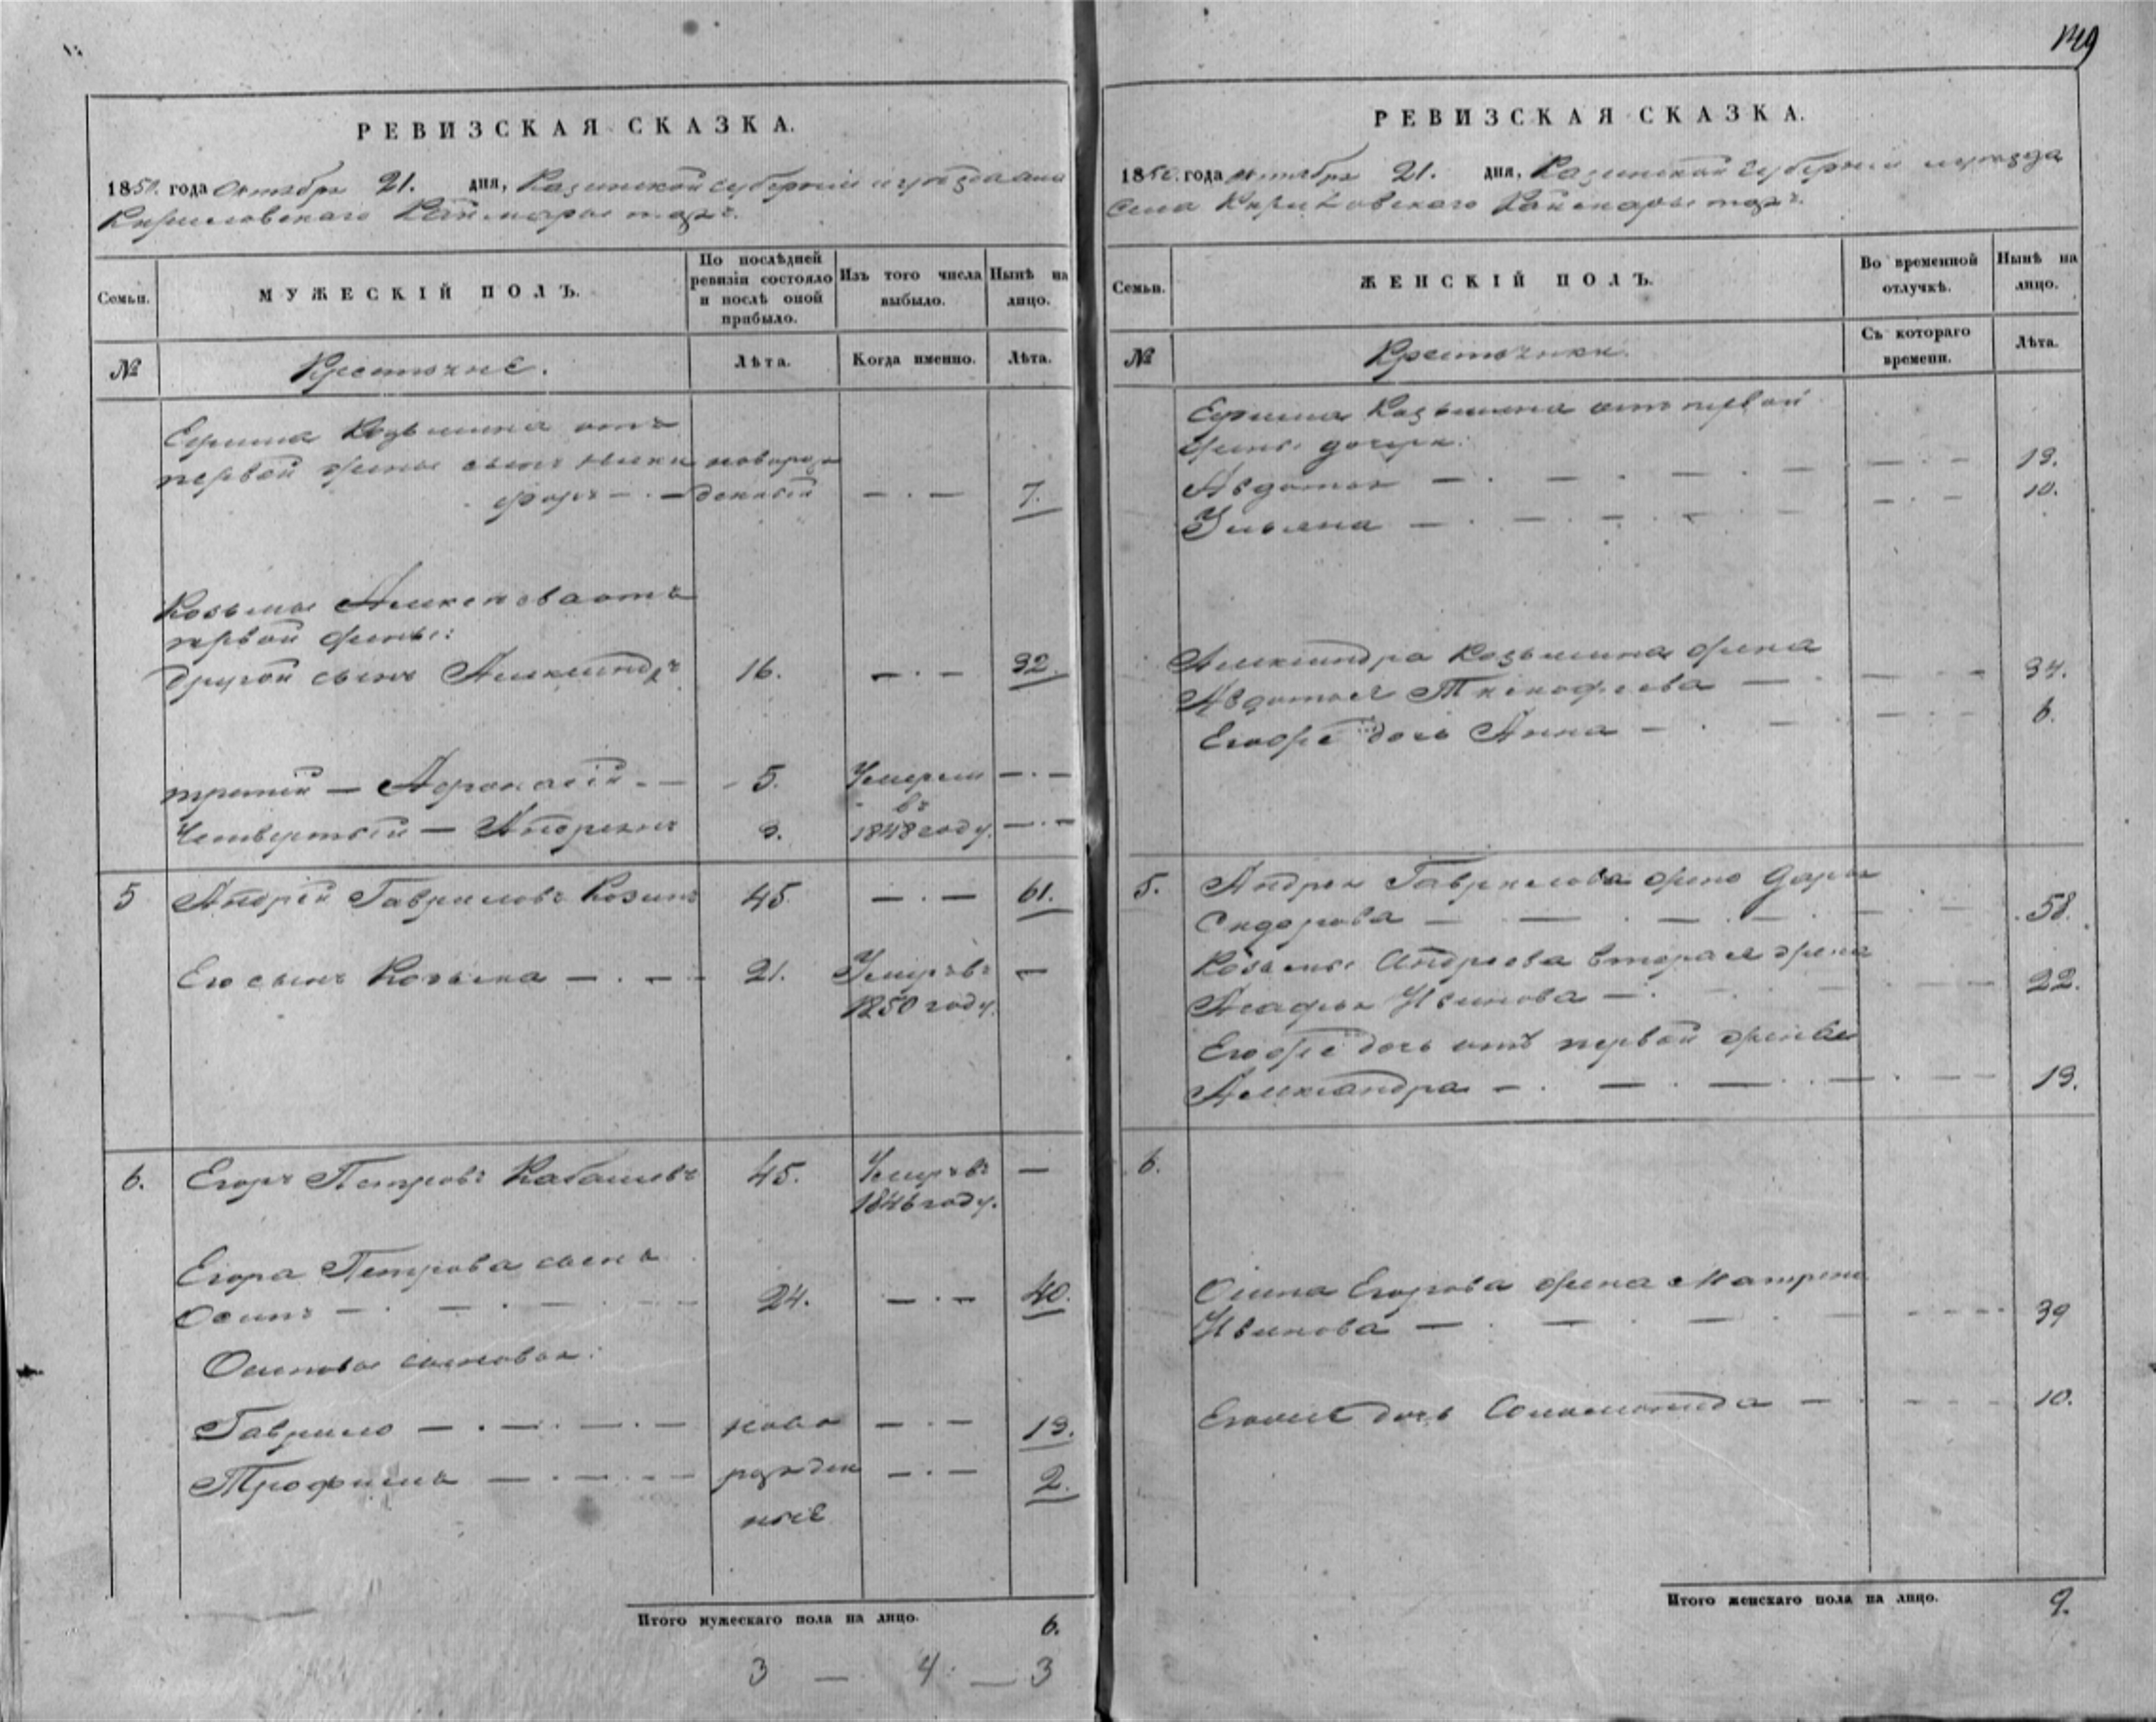 149
РЕВИЗСКАЯ СКАЗКА.
1850. года Октября 21. дня, Казанской губернии и уезда села
Кириловскаго Каймары тожъ.
Семьи.
МУЖЕСКІЙ ПОЛЪ.
По послѣдней ревизіи состояло и послѣ оной прибыло.
Изъ того числа выбыло.
Нынѣ на лицо.
№
Крестьяне.
Лѣта.
Когда именно.
Лѣта.
Ефима Козьмина отъ
первой жены сынъ Ники новорож
форъ — . — денный — . — 7.
Козьмы Алексеева отъ
первой жены:
другой сынъ Александръ 16. — . — 32.
третій — Афонасій . — 5. Умерли — . —
въ
Четвертый — Андреянъ 3. 1848 году. — . —
5 Андрей Гавриловъ Козинъ 45 — . — 61.
Его сынъ Козьма — . — 21. Умеръ въ —
1850 году.
6. Егоръ Петровъ Кабашевъ 45. Умеръ въ —
1846 году.
Егора Петрова сынъ
Осипъ — . — . — 24. — . — 40.
Осиповы сыновья:
Гаврило — . — . — . — ново — . — 13.
Трофимъ — . — . — рожден — . — 2.
ные
Итого мужескаго пола на лицо. 6.
3 — 4 — 3
РЕВИЗСКАЯ СКАЗКА.
1850. года октября 21. дня, Казанской губернии и уезда
Села Кириловскаго Каймары тожъ.
Семьи.
ЖЕНСКІЙ ПОЛЪ.
Во временной отлучкѣ.
Нынѣ на лицо.
№
Крестьянки.
Съ котораго времени.
Лѣта.
Ефима Козьмина отъ первой
жены дочери:
Авдотья — . — . — . — 13.
Ульяна — . — . — . — 10.
Александра Козьмина жена
Авдотья Тимофеева — . — 34.
Егоже дочь Анна — . — 6.
5. Андрея Гаврилова жена Дарья
Сидорова — . — . — 58.
Козьмы Андреева вторая жена
Агафья Иванова — . — 22.
Егоже дочь отъ первой жены
Александра — . — . — 13.
6.
Осипа Егорова жена Матрена
Иванова — . — . — 39
Егоже дочь Соломонида — . — 10.
Итого женскаго пола на лицо. 9.